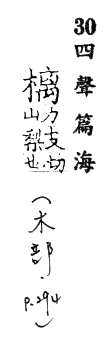 30四聲篇海
樆力支切
山梨也
(木部 p.294)